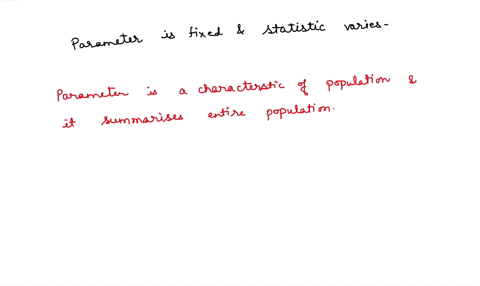 Parameter is fixed & statistic varies-
Parameter is a characterstic of population &
it summarises entire population.